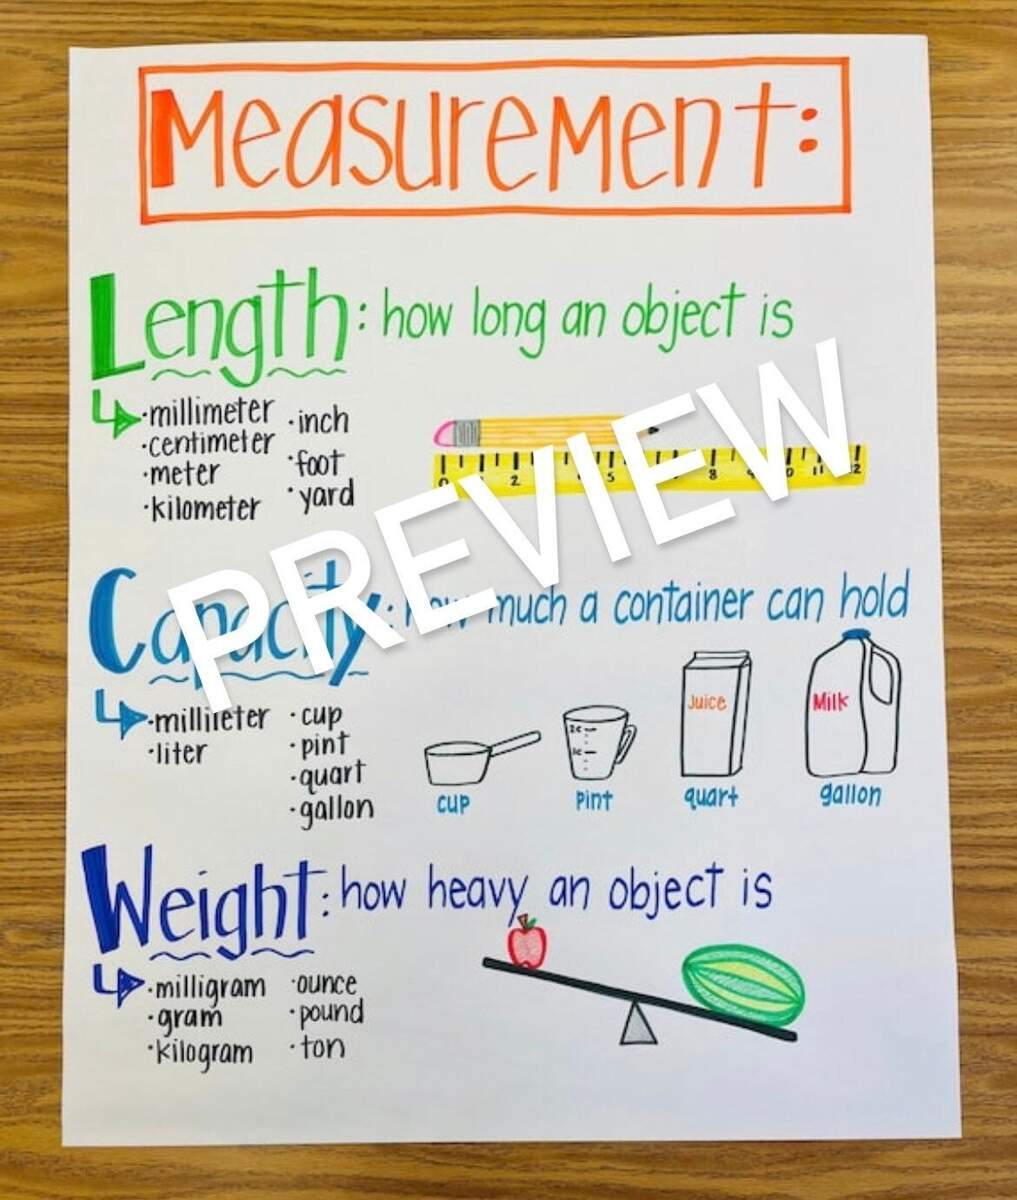 Measurement:
Length: how long an object is
·millimeter ·inch
·centimeter ·foot
·meter ·yard
·kilometer
0 1 2 4 5 7 8 9 10 11 12
PREVIEW
Capacity: how much a container can hold
·milliliter ·cup
·liter ·pint
·quart
·gallon
Juice
Milk
2c
1c
cup pint quart gallon
Weight: how heavy an object is
·milligram ·ounce
·gram ·pound
·kilogram ·ton